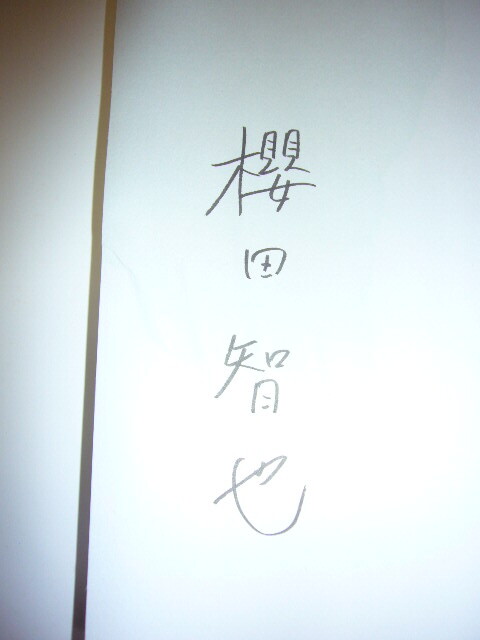 櫻田智也